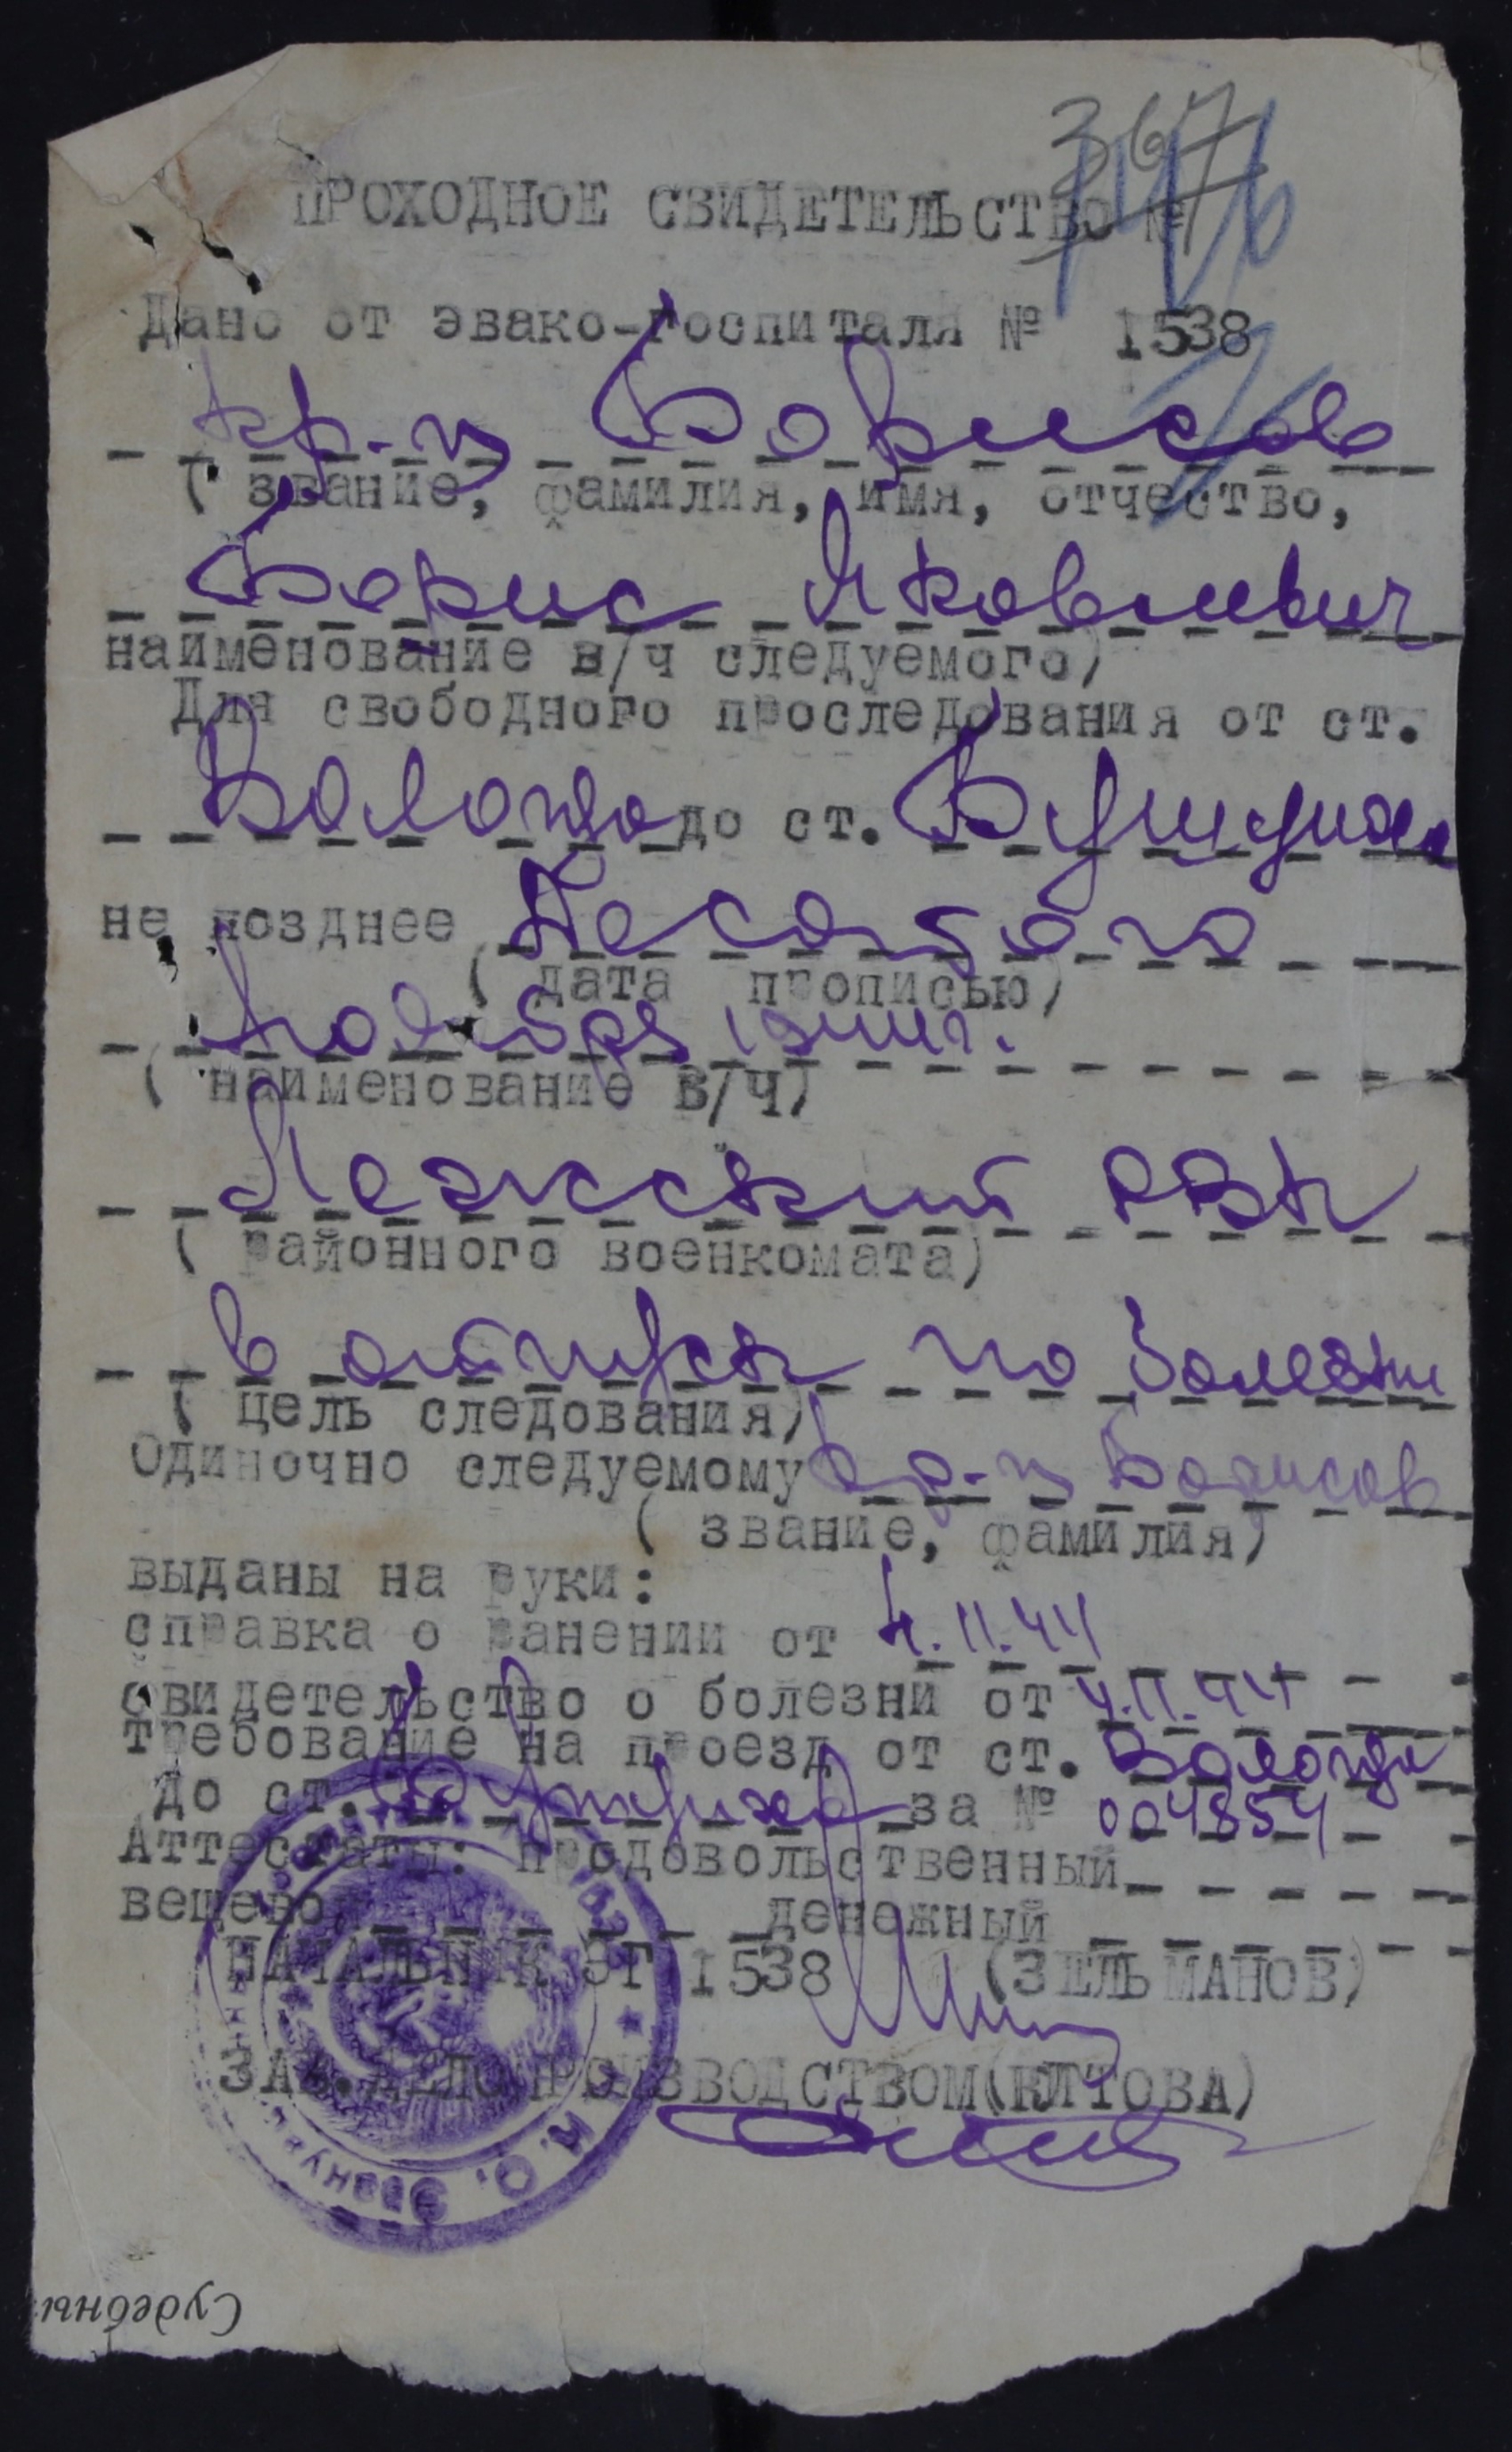 367
ПРОХОДНОЕ СВИДЕТЕЛЬСТВО №
Дано от эвако-госпиталя № 1538
кр-ц Борисов
( звание, фамилия, имя, отчество,
Борис Яковлевич
наименование в/ч следуемого)
Для свободного проследования от ст.
Вологда до ст. Бушуиха
не позднее Десятого
( дата прописью)
Ноября 1944 г.
( наименование в/ч)
Лежский РВК
( районного военкомата)
в отпуск по болезни
( цель следования)
Одиночно следуемому кр-ц Борисов
( звание, фамилия)
выданы на руки:
справка о ранении от 4.11.44
свидетельство о болезни от 4.11.44
требование на проезд от ст. Вологда
до ст. Бушуиха за № 004854
Аттестаты: продовольственный
вещевой денежный
НАЧАЛЬНИК ЭГ 1538 (ЗЕЛЬМАНОВ)
ЗАВ. ДЕЛОПРОИЗВОДСТВОМ (КИТОВА)
Н.К.О. Эваку
Судебны